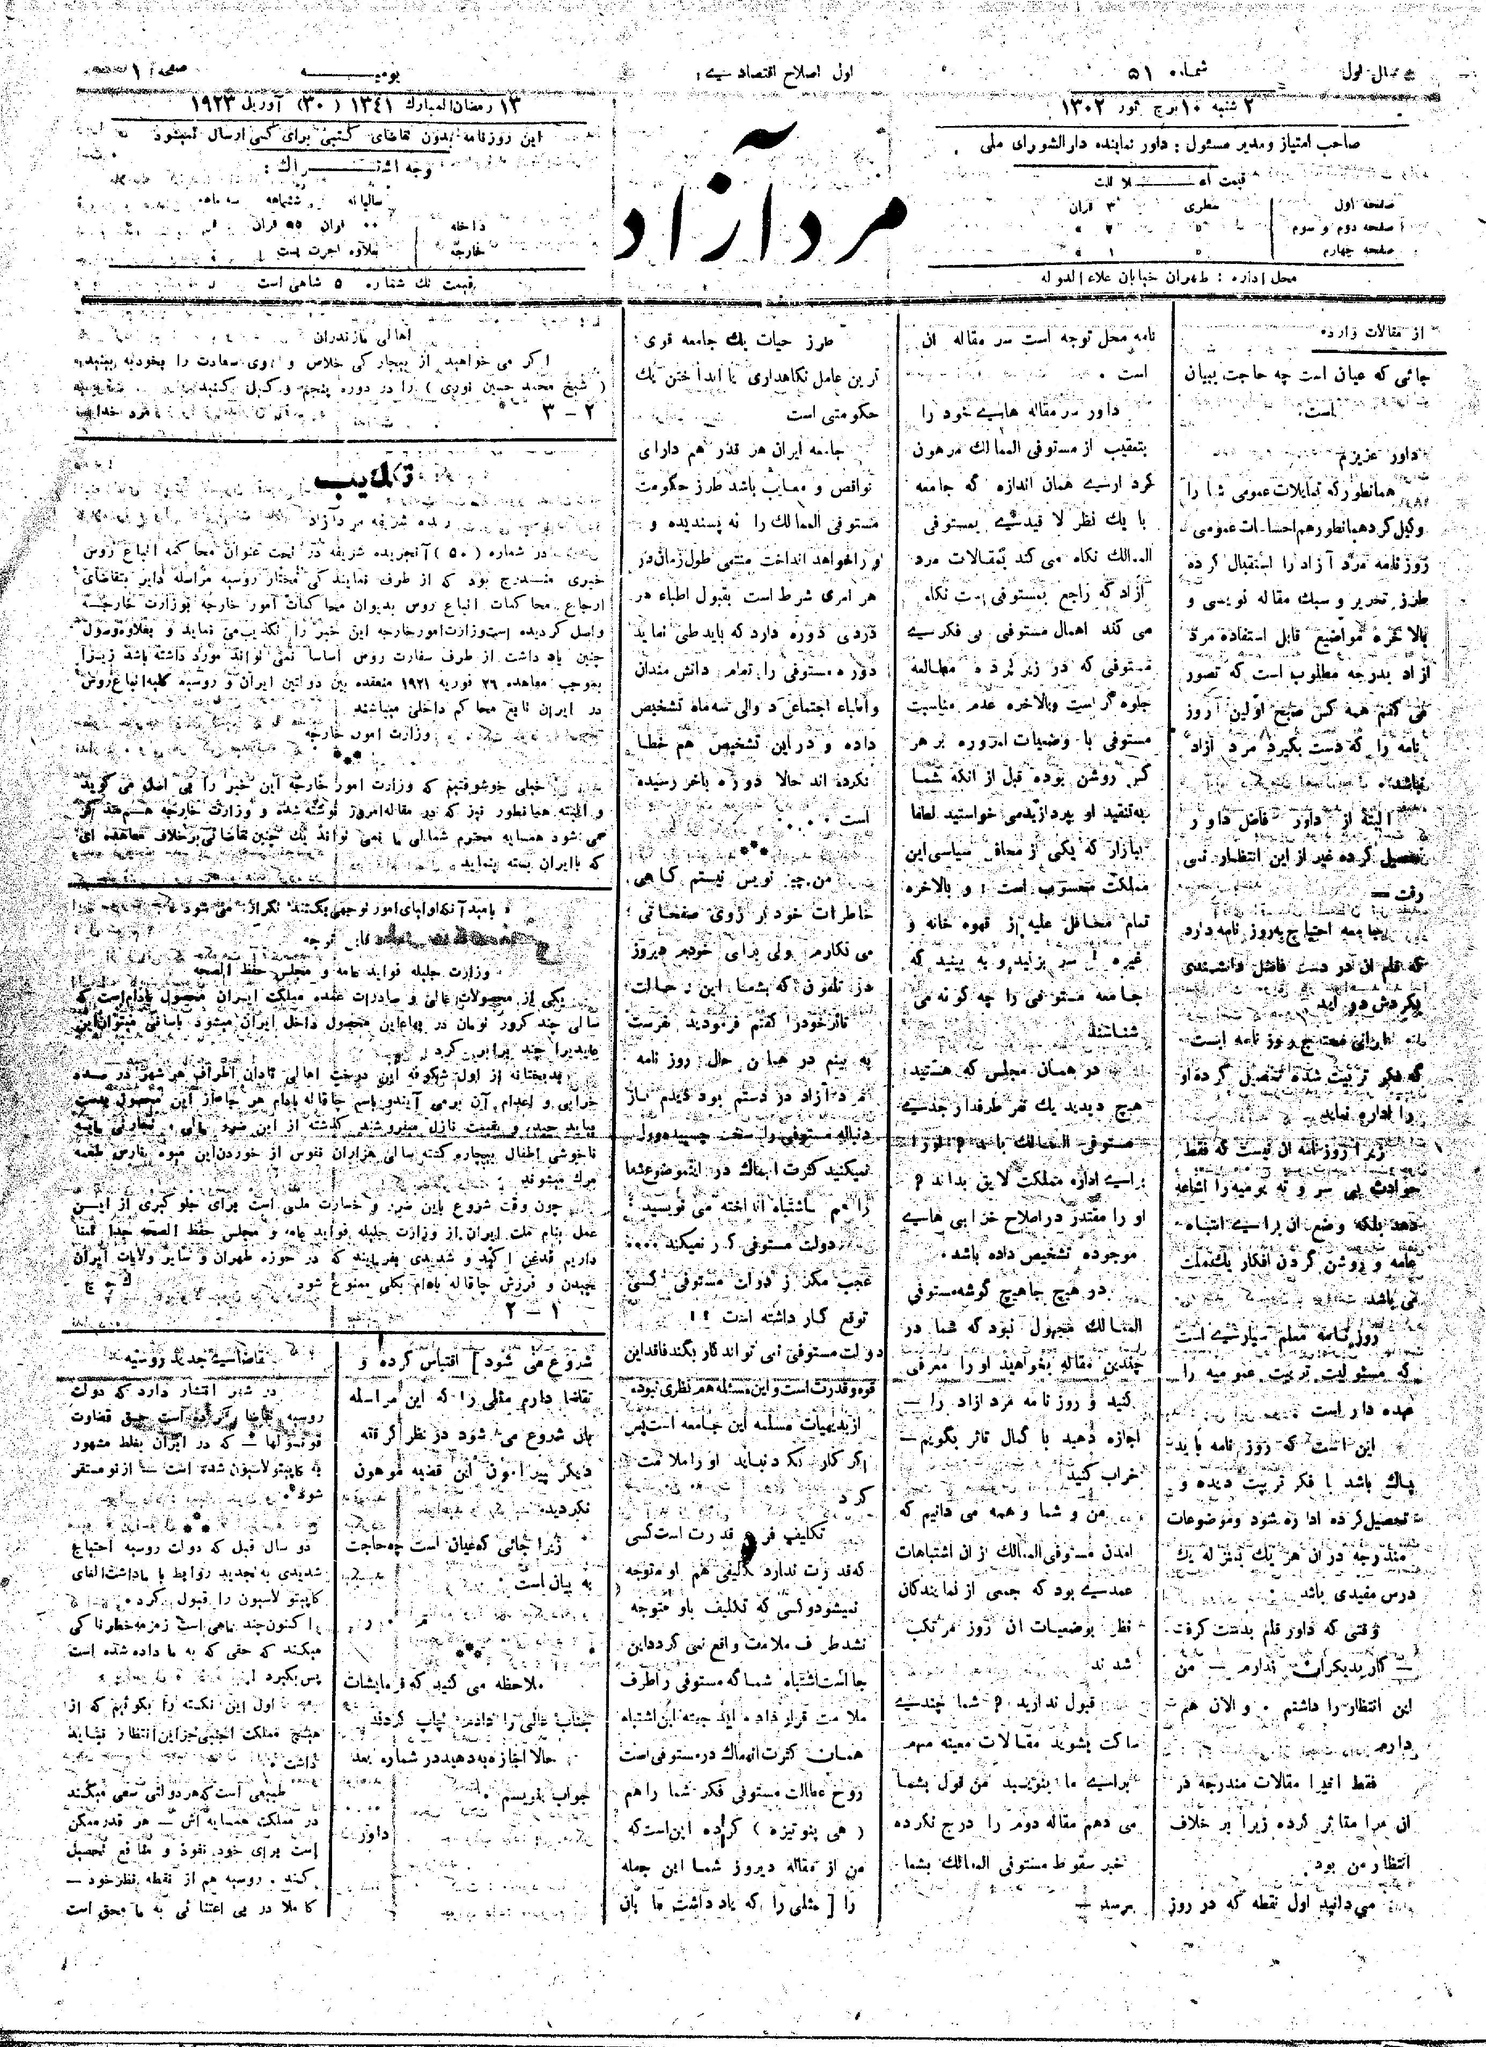 سال اول
شماره ۵۱
اول اصلاح اقتصادیے ؛
یومیه
صفحه ۱
۲ شنبه ۱۰ برج ثور ۱۳۰۲
۱۳ رمضان المبارك ۱۳٤۱ (۳۰) آوریل ۱۹۲۳
صاحب امتیاز و مدیر مسئول : داور نماینده دارالشورای ملی
قیمت اعلانات
صفحه اول سطری ۳ قران
صفحه دوم و سوم » ۲ »
صفحه چهارم » ۱ »
محل اداره : طهران خیابان علاء الدوله
مرد آزاد
این روزنامه بدون تقاضای کتبی برای کسی ارسال نمیشود
وجه اشتراك :
سالیانه ششماهه سه ماهه
داخله قران ۵۵ قران
خارجه بعلاوه اجرت پست
قیمت تك شماره ۵ شاهی است
از مقالات وارده
جائی که عیان است چه حاجت ببیان
است.
داور عزیزم
همانطور که تمایلات عمومی شما را
وکیل کرد همانطور هم احساسات عمومی
روزنامه مرد آزاد را استقبال کرده
طرز تحریر و سبك مقاله نویسی و
بالاخره مواضیع قابل استفاده مرد
ازاد بدرجه مطلوب است که تصور
می کنم همه کس صبح اولین روز
نامه را که دست بگیرد مرد ازاد
باشد.
البته از داور فاضل داور
تحصیل کرده غیر از این انتظار نمی
رفت —
جامعه احتیاج به روز نامه دارد
که قلم ان در دست فاضل دانشمندی
بگردش در اید
ایرانی محتاج روز نامه ایست
که فکر تربیت شده تحصیل کرده او
را اداره نماید
زیرا روزنامه ان نیست که فقط
حوادث بی سر و ته یومیه را اشاعه
دهد بلکه وضع ان برای انتباه
عامه و روشن کردن افکار یك ملت
می باشد
روزنامه معلم سیاری است
که مسئولیت تربیت عمومیه را
عهده دار است
این است که روز نامه باید
پاك باشد با فکر تربیت دیده و
تحصیل کرده اداره شود و موضوعات
مندرجه در ان هر یك بمنزله یك
درس مفیدی باشد
وقتی که داور قلم بدست گرفت
— کار بدیگران ندارم — من
این انتظار را داشتم . و الان هم
دارم
فقط اخیرا مقالات مندرجه در
ان مرا متاثر کرده زیرا بر خلاف
انتظار من بود
میدانید اول نقطه که در روز
نامه محل توجه است سر مقاله ان
است .
داور سر مقاله هایے خود را
بتعقیب از مستوفی الممالك مرهون
کرد ارے همان اندازه که جامعه
با یك نظر لا قیدیے بمستوفی
الممالك نگاه می کند بمقالات مرد
آزاد که راجع بمستوفی است نگاه
می کند اهمال مستوفی بی فکریے
مستوفی که در زیر پرده مطالعه
جلوه گر است وبالاخره عدم مناسبت
مستوفی با وضعیات امروزه بر هر
کس روشن بوده قبل از انکه شما
به تنقید او بپردازید می خواستید لطفا
ببازار که یکی از محافل سیاسی این
مملکت محسوب است ! و بالاخره
تمام محافل علیه از قهوه خانه و
غیره ! سر بزنید و به بینید که
جامعه مستوفی را چه گونه می
شناسند
در همان مجلس که هستید
هیچ دیدید یك نفر طرفدار جدیے
مستوفی الممالك باشد ؟ او را
برایے اداره مملکت لایق بداند ؟
او را مقتدر در اصلاح خرابی هایے
موجوده تشخیص داده باشد
در هیچ جا هیچ گوشه مستوفی
الممالك مجهول نبود که شما در
چندین مقاله بخواهید او را معرفی
کنید و روز نامه مرد ازاد را —
اجازه دهید با کمال تاثر بگویم —
خراب کنید
من و شما و همه می دانیم که
امدن مستوفی الممالك از ان اشتباهات
عمدیے بود که جمعی از نمایندگان
نظر بوضعیات ان روز مرتکب
شدند
قبول ندارید ؟ شما چندے
ساکت بشوید مقالات معینه مهم
برایے ما بنویسید من قول بشما
می دهم مقاله دوم را درج نکرده
خبر سقوط مستوفی الممالك بشما
برسد —
طرز حیات یك جامعه قوی
ترین عامل نگاهداری یا انداختن یك
حکومتی است
جامعه ایران هر قدر هم دارای
نواقص و معایب باشد طرز حکومت
مستوفی الممالك را نه پسندیده و
او را خواهد انداخت منتهی طول زمان در
هر امری شرط است بقول اطباء هر
دردی دوره دارد که باید طی نماید
دوره مستوفی را تمام دانش مندان
و اطباء اجتماعی دو الی سه ماه تشخیص
داده و در این تشخیص هم خطا
نکرده اند حالا دوره باخر رسیده
است . . . .
⁂
من چیز نویس نیستم گاهی
خاطرات خود بر روی صفحاتی
می نگارم ولی برای خودم دیروز
در تلفون که بشما این حالت
تاثر خود را گفتم فرمودید بفرست
به بینم در همان حال روز نامه
مرد آزاد در دستم بود دیدم باز
دنباله مستوفی را سخت چسبیده و ول
نمیکنید کثرت انهماك در این موضوع شما
را هم باشتباه انداخته می نویسید !
دولت مستوفی کار نمیکند ....
عجب مگر از دولت مستوفی کسی
توقع کار داشته است ؟ !
دولت مستوفی نمی تواند کار بکند فاقد این
قوه و قدرت است و این مسئله هم نظری نبوده
از بدیهیات مسلمه این جامعه است پس
اگر کار نکرد نباید او را ملامت
کرد
تکلیف فرع قدرت است کسی
که قدرت ندارد تکلیفی هم او متوجه
نمیشود و کسی که تکلیف باو متوجه
نشد طرف ملامت واقع نمی گردد این
جا است اشتباه شما که مستوفی را طرف
ملامت قرار داده اید جهته این اشتباه
همان کثرت انهماك در مستوفی است
روح عطالت مستوفی فکر شما را هم
( هی پنوتیزه ) کرده این است که
من از مقاله دیروز شما این جمله
را [ مثلی را که یاد داشت ما بان
شروع می شود ] اقتباس کرده و
تقاضا دارم مثلی را که این مراسله
بان شروع می شود در نظر گرفته
دیگر پیرامون این قضیه موهون
نگردیده
زیرا جائی که عیان است چه حاجت
به بیان است .
⁂
ملاحظه می کنید که فرمایشات
جناب عالی را دادم چاپ کردند
حالا اجازه بدهید در شماره بعد
جواب بنویسم .
داور
اهالی مازندران
اگر می خواهید از بیچارگی خلاص و روی سعادت را بخود به بینید
( شیخ محمد حسین نوری ) را در دوره پنجم وکیل کنید
۲ – ۳
تکذیب
جریده شریفه مرد آزاد
در شماره (۵۰) آنجریده شریفه در تحت عنوان محاکمه اتباع روس
خبری مندرج بود که از طرف نمایندگی مختار روسیه مراسله دایر بتقاضای
ارجاع محاکمات اتباع روس بدیوان محاکمات امور خارجه بوزارت خارجه
واصل گردیده است وزارت امور خارجه این خبر را تکذیب می نماید و بعلاوه وصول
چنین یاد داشت از طرف سفارت روس اساسا نمی تواند مورد داشته باشد زیرا
بموجب معاهده ۲۶ فوریه ۱۹۲۱ منعقده بین دولتین ایران و روسیه کلیه اتباع روس
در ایران تابع محاکم داخلی میباشند
وزارت امور خارجه
⁂
خیلی خوشوقتیم که وزارت امور خارجه این خبر را بی اصل می گوید
و البته همانطور نیز که در مقاله امروز نوشته شده و وزارت خارجه هم متذکر
می شود همسایه محترم شمالی ما نمی تواند یك چنین تقاضائی بر خلاف معاهده ای
که با ایران بسته بنماید
بامید آنکه اولیای امور توجهی بکنند تکرار می شود
قابل توجه
وزارت جلیله فواید عامه و مجلس حفظ الصحه
یکی از محصولات عالی و صادرات عمده مملکت ایران محصول بادام است که
سالی چند کرور تومان در بهای این محصول داخل ایران میشود باسانی میتوان این
عایدیرا چند برابر کرد
بدبختانه از اول شکوفه این درخت اهالی نادان اطراف هر شهر در صدد
خرابی و اعدام آن برمی آیند و باسم چاقاله بادام هر جا از این محصول بدست
بیاید چیده و بقیمت نازل میفروشند گذشته از این ضرر مالی
ناخوشی اطفال بیچاره گشته سالی هزاران نفوس از خوردن این میوه نارس طعمه
مرك میشوند
چون وقت شروع باین ضرر و خسارت ملی است برای جلو گیری از این
عمل بنام ملت ایران از وزارت جلیله فواید عامه و مجلس حفظ الصحه جدا تمنا
داریم قدغن اکید و شدیدی بفرمایند که در حوزه طهران و سایر ولایات ایران
چیدن و فروش چاقاله بادام بکلی ممنوع شود
۱ – ۲
تقاضایے جدید روسیه
در شهر انتشار دارد که دولت
روسیه تقاضا کرده است حق قضاوت
قونسولها — که در ایران بغلط مشهور
به کاپیتولاسیون شده است — از نو مستقر
شود .
⁂
دو سال قبل که دولت روسیه احتیاج
شدیدی به تجدید روابط با ما داشت الغای
کاپیتولاسیون را قبول کرد .
اکنون چند ماهی است زمزمه خطرناکی
میکند که حقی که به ما داده شده است
پس بگیرد !
اول این نکته را بگوئیم که از
هیچ مملکت اجنبی جز این انتظار نباید
داشت .
طبیعی است که هر دولتی سعی میکند
در مملکت همسایه اش — هر قدر ممکن
است برای خود نفوذ و منافع تحصیل
کند . روسیه هم از نقطه نظر خود —
کاملا در بی اعتنائی به ما محق است